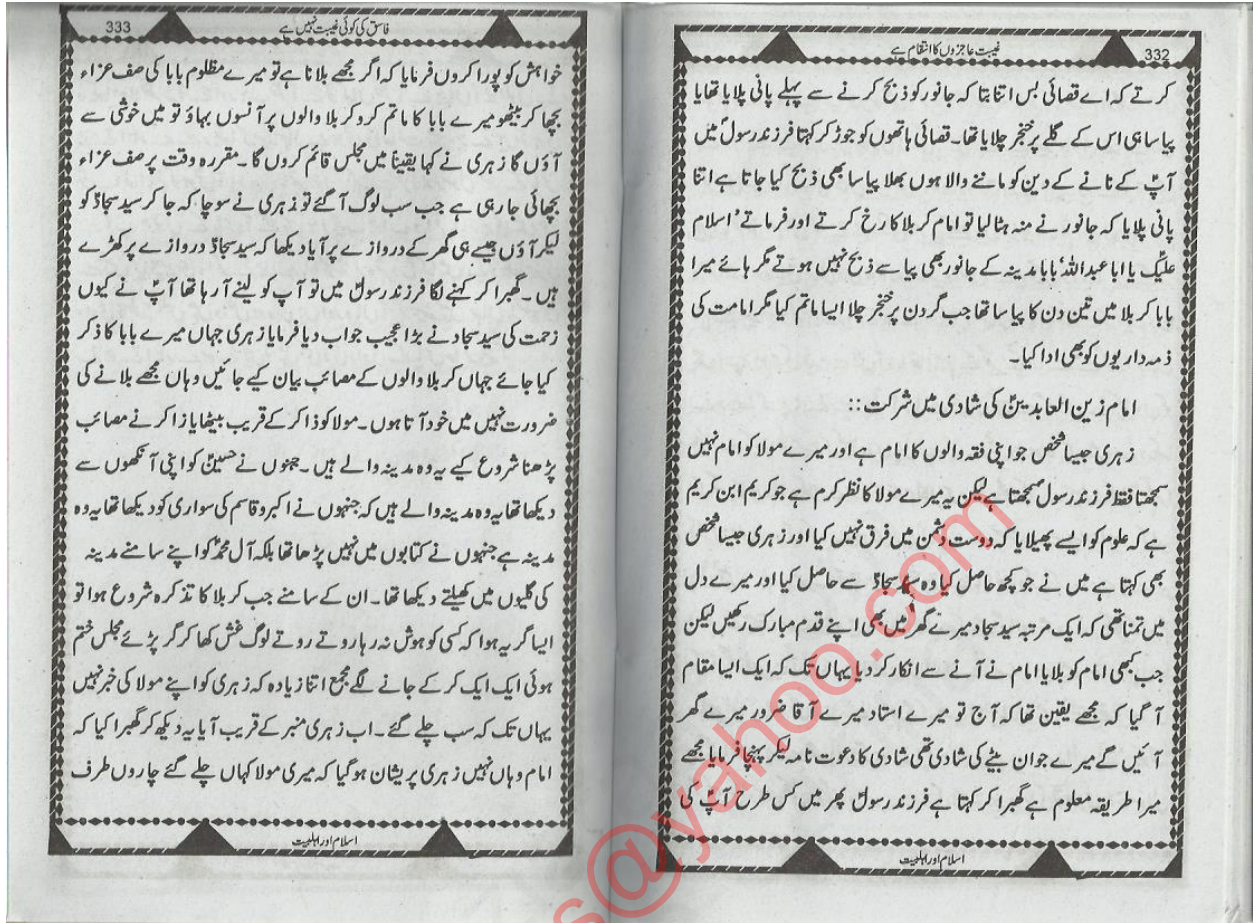 غیبت عاجزوں کا انتقام ہے
332
کرتے کہ اے قصائی بس اتنا بتا کہ جانور کو ذبح کرنے سے پہلے پانی پلایا تھا یا
پیاسا ہی اس کے گلے پر خنجر چلایا تھا۔ قصائی ہاتھوں کو جوڑ کر کہتا فرزند رسولؐ میں
آپؑ کے نانے کے دین کو ماننے والا ہوں بھلا پیاسا بھی ذبح کیا جاتا ہے اتنا
پانی پلایا کہ جانور نے منہ ہٹا لیا تو امام کربلا کا رخ کرتے اور فرماتے 'اسلام
علیک یا ابا عبداللہؑ' بابا مدینہ کے جانور بھی پیاسے ذبح نہیں ہوتے مگر ہائے میرا
بابا کربلا میں تین دن کا پیاسا تھا جب گردن پر خنجر چلا ایسا ماتم کیا مگر امامت کی
ذمہ داریوں کو بھی ادا کیا۔
امام زین العابدینؑ کی شادی میں شرکت::
زہری جیسا شخص جو اپنی فقہ والوں کا امام ہے اور میرے مولا کو امام نہیں
سمجھتا فقط فرزند رسولؐ سمجھتا ہے لیکن یہ میرے مولا کا نظر کرم ہے جو کریم ابن کریم
ہے کہ علوم کو ایسے پھیلایا کہ دوست دشمن میں فرق نہیں کیا اور زہری جیسا شخص
بھی کہتا ہے میں نے جو کچھ حاصل کیا وہ سید سجادؑ سے حاصل کیا اور میرے دل
میں تمنا تھی کہ ایک مرتبہ سید سجاد میرے گھر میں بھی اپنے قدم مبارک رکھیں لیکن
جب کبھی امام کو بلایا امام نے آنے سے انکار کر دیا یہاں تک کہ ایک ایسا مقام
آ گیا کہ مجھے یقین تھا کہ آج تو میرے استاد میرے آقا ضرور میرے گھر
آئیں گے میرے جوان بیٹے کی شادی تھی شادی کا دعوت نامہ لیکر پہنچا فرمایا مجھے
میرا طریقہ معلوم ہے گھبرا کر کہتا ہے فرزند رسولؐ پھر میں کس طرح آپؑ کی
اسلام اور اہلبیت
فاسق کی کوئی غیبت نہیں ہے
333
خواہش کو پورا کروں فرمایا کہ اگر مجھے بلانا ہے تو میرے مظلوم بابا کی صف عزاء
بچھا کر بیٹھو میرے بابا کا ماتم کرو کربلا والوں پر آنسوں بہاؤ تو میں خوشی سے
آؤں گا زہری نے کہا یقیناً میں مجلس قائم کروں گا۔ مقررہ وقت پر صف عزاء
بچھائی جا رہی ہے جب سب لوگ آ گئے تو زہری نے سوچا کہ جا کر سید سجادؑ کو
لیکر آؤں جیسے ہی گھر کے دروازے پر آیا دیکھا کہ سید سجادؑ دروازے پر کھڑے
ہیں۔ گھبرا کر کہنے لگا فرزند رسولؐ میں تو آپ کو لینے آ رہا تھا آپؑ نے کیوں
زحمت کی سید سجاد نے بڑا عجیب جواب دیا فرمایا زہری جہاں میرے بابا کا ذکر
کیا جائے جہاں کربلا والوں کے مصائب بیان کیے جائیں وہاں مجھے بلانے کی
ضرورت نہیں میں خود آتا ہوں۔ مولا کو ذاکر کے قریب بیٹھایا ذاکر نے مصائب
پڑھنا شروع کیے یہ وہ مدینہ والے ہیں۔ جنہوں نے حسینؑ کو اپنی آنکھوں سے
دیکھا تھا یہ وہ مدینہ والے ہیں کہ جنہوں نے اکبر و قاسم کی سواری کو دیکھا تھا یہ وہ
مدینہ ہے جنہوں نے کتابوں میں نہیں پڑھا تھا بلکہ آل محمدؐ کو اپنے سامنے مدینہ
کی گلیوں میں کھیلتے دیکھا تھا۔ ان کے سامنے جب کربلا کا تذکرہ شروع ہوا تو
ایسا گریہ ہوا کہ کسی کو ہوش نہ رہا روتے روتے لوگ غش کھا کر گر پڑے مجلس ختم
ہوئی ایک ایک کر کے جانے لگے مجمع اتنا زیادہ کہ زہری کو اپنے مولا کی خبر نہیں
یہاں تک کہ سب چلے گئے۔ اب زہری منبر کے قریب آیا یہ دیکھ کر گھبرا گیا کہ
امام وہاں نہیں زہری پریشان ہو گیا کہ میری مولا کہاں چلے گئے چاروں طرف
اسلام اور اہلبیت
s@yahoo.com